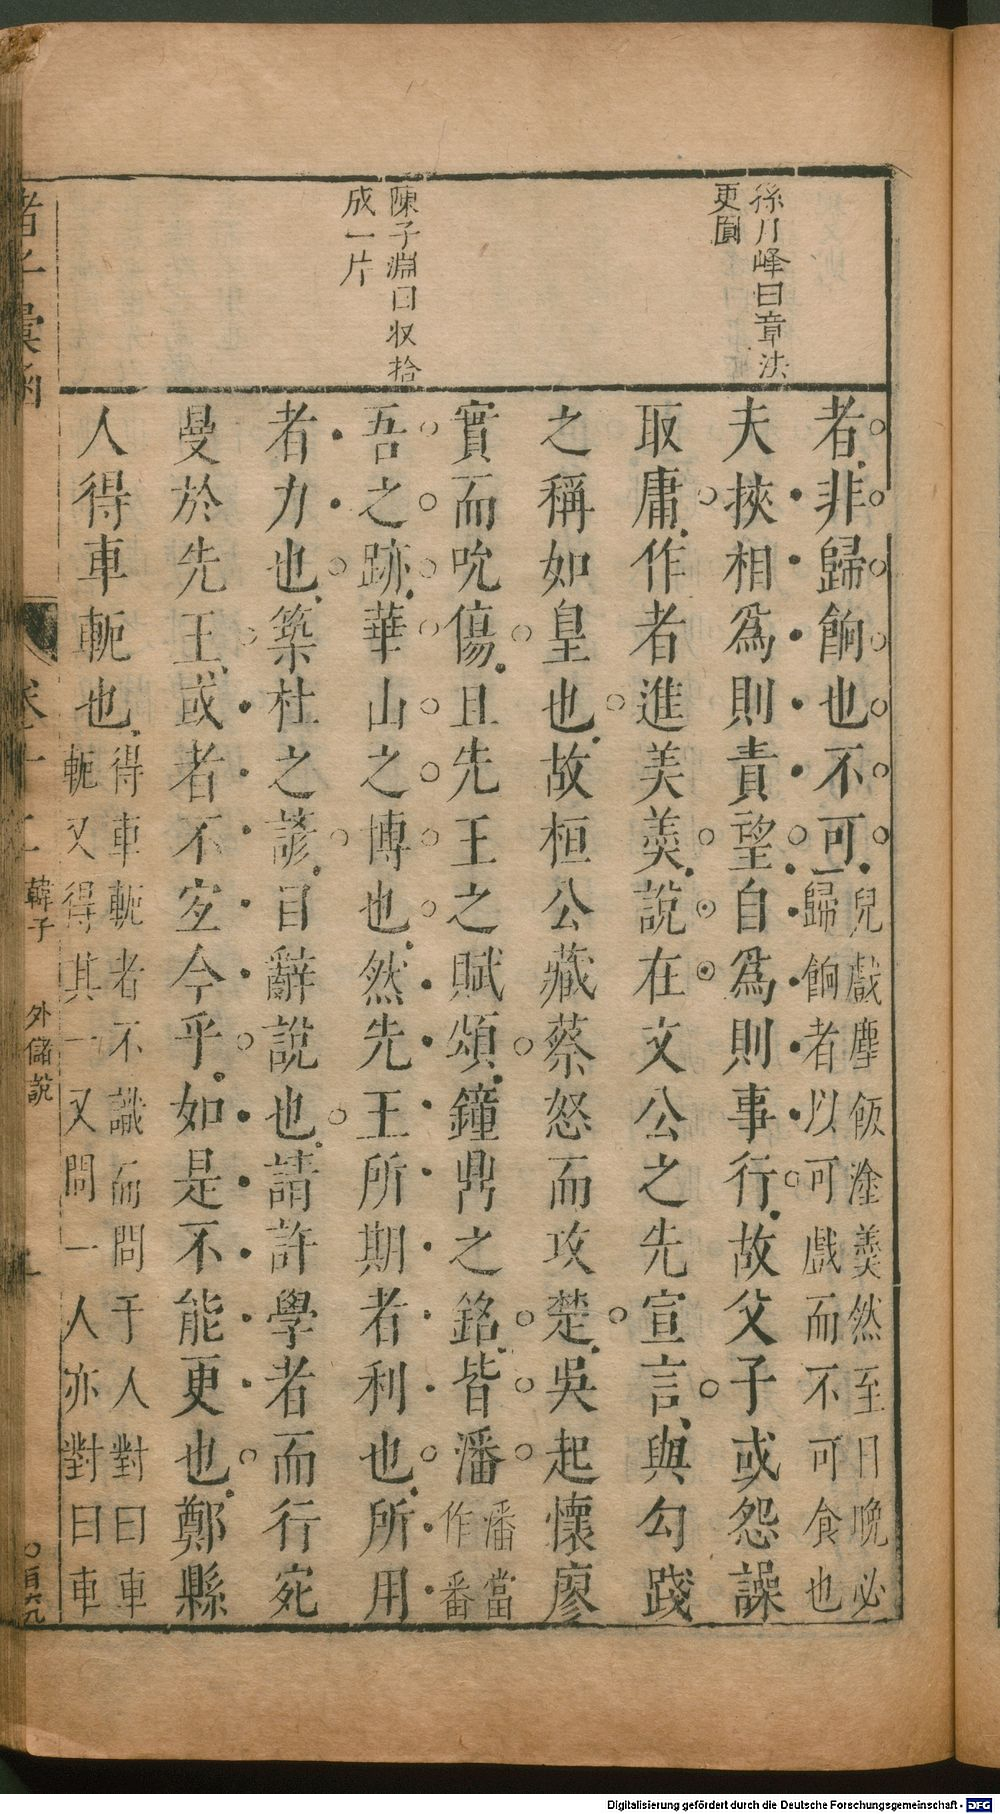 孫月峰曰章法
更圓
陳子淵曰収拾
成一片
者非歸餉也不可兒戲塵飯塗羹然至日晚必
歸餉者以可戲而不可食也
夫挾相爲則責望自爲則事行故父子或怨譟
取庸作者進美羹說在文公之先宣言與勾踐
之稱如皇也故桓公藏蔡怒而攻楚吳起懷廖
實而吮傷且先王之賦頌鐘鼎之銘皆潘潘當
作番
吾之跡華山之博也然先王所期者利也所用
者力也築杜之諺目辭說也請許學者而行宛
曼於先王或者不宜今乎如是不能更也鄭縣
人得車軛也得車軛者不識而問于人對曰車
軛又得其一又問一人亦對曰車
諸子彙函
卷十二
韓子
外儲説
Digitalisierung gefördert durch die Deutsche Forschungsgemeinschaft - DFG